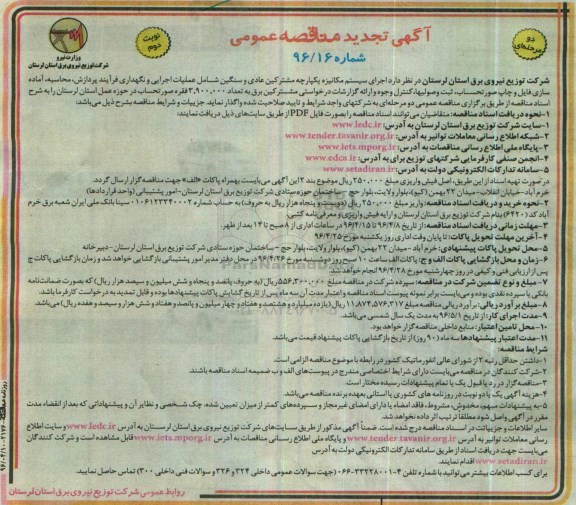 آگهی تجدید مناقصه عمومی
شماره ۹۶/۱۶
دو مرحله‌ای
نوبت دوم
وزارت نیرو
شرکت توزیع نیروی برق استان لرستان
شرکت توزیع نیروی برق استان لرستان در نظر دارد اجرای سیستم مکانیزه یکپارچه مشترکین عادی و سنگین شامل عملیات اجرایی و نگهداری فرآیند پردازش، محاسبه، آماده
سازی فایل و چاپ صورتحساب، ثبت وصولیها، کنترل وجوه و ارائه گزارشات درخواستی مشترکین برق به تعداد ۳,۹۰۰,۰۰۰ فقره صورتحساب در حوزه عمل استان لرستان را به شرح
اسناد مناقصه از طریق برگزاری مناقصه عمومی دو مرحله‌ای به شرکتهای واجد شرایط و تایید صلاحیت شده واگذار نماید. جزییات و شرایط مناقصه بشرح ذیل می‌باشد:
۱-نحوه دریافت اسناد مناقصه: متقاضیان می توانند اسناد مناقصه را بصورت فایل PDF از طریق سایت‌های ذیل دریافت نمایند:
۱-سایت شرکت توزیع برق استان لرستان به آدرس: www.ledc.ir
۲-شبکه اطلاع رسانی معاملات توانیر به آدرس: www.tender.tavanir.org.ir
۳-پایگاه ملی اطلاع رسانی مناقصات به آدرس: www.iets.mporg.ir
۴-انجمن صنفی کارفرمایی شرکتهای توزیع برای به آدرس: www.edca.ir
۵-سامانه تدارکات الکترونیکی دولت به آدرس: www.setadiran.ir
در صورت تهیه اسناد از این طریق، اصل فیش واریزی مبلغ ۲۵۰,۰۰۰ ریال موضوع بند ۲ این آگهی می‌بایست بهمراه پاکات «الف» جهت مناقصه گزار ارسال گردد.
خرم آباد-خیابان انقلاب-میدان ۲۲ بهمن (کیو)، بلوار ولایت، بلوار حج -ساختمان حوزه ستادی شرکت توزیع برق استان لرستان -امور پشتیبانی (واحد قراردادها)
۲-نحوه خرید و دریافت اسناد مناقصه: واریز مبلغ ۲۵۰,۰۰۰ ریال (دویست و پنجاه هزار ریال به حروف) به حساب شماره ۰۱۰۶۱۲۳۴۴۰۰۰۲ سیبا بانک ملی ایران شعبه برق خرم
آباد کد (۶۴۲۰) بنام شرکت توزیع برق استان لرستان و ارایه فیش واریزی و معرفی‌نامه کتبی.
۳-مهلت زمانی دریافت اسناد مناقصه: از تاریخ ۹۶/۴/۸ تا ۹۶/۴/۱۵ در ساعات اداری از ۸ صبح تا ۱۴ بعد از ظهر.
۴-آخرین مهلت تحویل پاکات: تا پایان وقت اداری روز یکشنبه مورخ ۹۶/۴/۲۵
۵-محل تحویل پاکات پیشنهادی: خرم آباد -میدان ۲۲ بهمن (کیو)، بلوار ولایت، بلوار حج -ساختمان حوزه ستادی شرکت توزیع برق استان لرستان -دبیرخانه
۶-زمان و محل بازگشایی پاکات الف و ج: پاکات الف ساعت ۱۰ صبح روز دوشنبه مورخ ۹۶/۴/۲۶ در محل دفتر مدیر امور پشتیبانی بازگشایی خواهد شد و زمان بازگشایی پاکات ج
پس از ارزیابی فنی و کیفی در روز چهارشنبه مورخ ۹۶/۴/۲۸ انجام خواهد شد.
۷-مبلغ و نوع تضمین شرکت در مناقصه: سپرده شرکت در مناقصه مبلغ ۵۵۶,۳۰۰,۰۰۰ ریال (به حروف پانصد و پنجاه و شش میلیون و سیصد هزار ریال) که بصورت ضمانت‌نامه
بانکی یا سپرده نقدی بوده و می‌بایست برابر نمونه پیوست اسناد مناقصه و اعتبار مدت آن سه ماه پس از تاریخ گشایش پاکات پیشنهادها بوده و قابل تمدید به درخواست کارفرما باشد.
۸-مبلغ برآورد ریالی: برآورد ریالی مناقصه مبلغ ۱۱,۸۷۴,۵۷۶,۳۱۷ ریال (یازده میلیارد و هشتصد و هفتاد و چهار میلیون و پانصد و هفتاد و شش هزار و سیصد و هفده ریال) می باشد.
۹-مدت اجرای کار: از تاریخ ۹۶/۵/۱ به مدت یک سال شمسی می‌باشد.
۱۰-محل تامین اعتبار: منابع داخلی مناقصه گزار خواهد بود.
۱۱-مدت اعتبار پیشنهادها سه ماه (۹۰ روز) از تاریخ بازگشایی پاکات پیشنهاد قیمت می‌باشد.
شرایط مناقصه:
۱-داشتن حداقل رتبه ۲ از شورای عالی انفورماتیک کشور در رابطه با موضوع مناقصه الزامی است.
۲-شرکت کنندگان در مناقصه می‌بایست دارای شرایط اختصاصی مندرج در پیوست‌های الف و ب ضمیمه اسناد مناقصه باشند.
۳-مناقصه گزار در رد یا قبول یک یا تمام پیشنهادات رسیده مختار است.
۴-هزینه آگهی یک یا دو نوبت در روزنامه های کشوری یا استانی بعهده برنده مناقصه می‌باشد.
۵-به پیشنهادات مبهم، مخدوش، مشروط، فاقد امضاء یا دارای امضای غیرمجاز و سپرده‌های کمتر از میزان تعیین شده، چک شخصی و نظایر آن و پیشنهاداتی که بعد از انقضاء مدت
مقرر در آگهی واصل شود مطلقا ترتیب اثر داده نخواهد شد.
سایر اطلاعات و جزییات در اسناد مناقصه درج شده است. ضمناً آگهی مذکور از طریق سایت‌های شرکت توزیع نیروی برق استان لرستان به آدرس www.ledc.ir و سایت اطلاع
رسانی معاملات توانیر به آدرس www.tender.tavanir.org.ir و پایگاه ملی اطلاع رسانی مناقصات به آدرس www.iets.mporg.ir قابل مشاهده است و شرکت کنندگان
می‌بایست جهت دریافت اسناد از طریق سامانه تدارکات الکترونیکی دولت به آدرس
www.setadiran.ir اقدام نمایند.
برای کسب اطلاعات بیشتر می‌توانید با شماره تلفن ۴-۳۳۲۲۸۰۰۱-۰۶۶ (جهت سوالات عمومی داخلی ۳۲۴ و ۳۲۶ و سوالات فنی داخلی ۳۰۰) تماس حاصل نمایید.
روابط عمومی شرکت توزیع نیروی برق استان لرستان